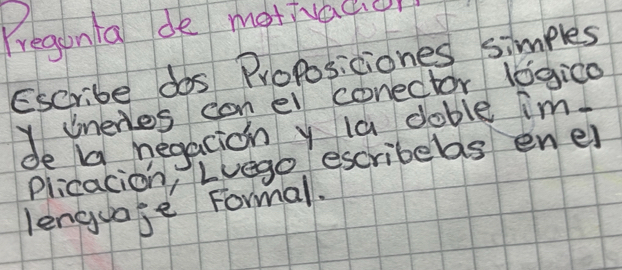 Pregunta de motivación
Escribe dos Proposiciones simples
y únenlos con el conector lógico
de la negación y la doble im-
plicación, Luego escribelas en el
lenguaje Formal.